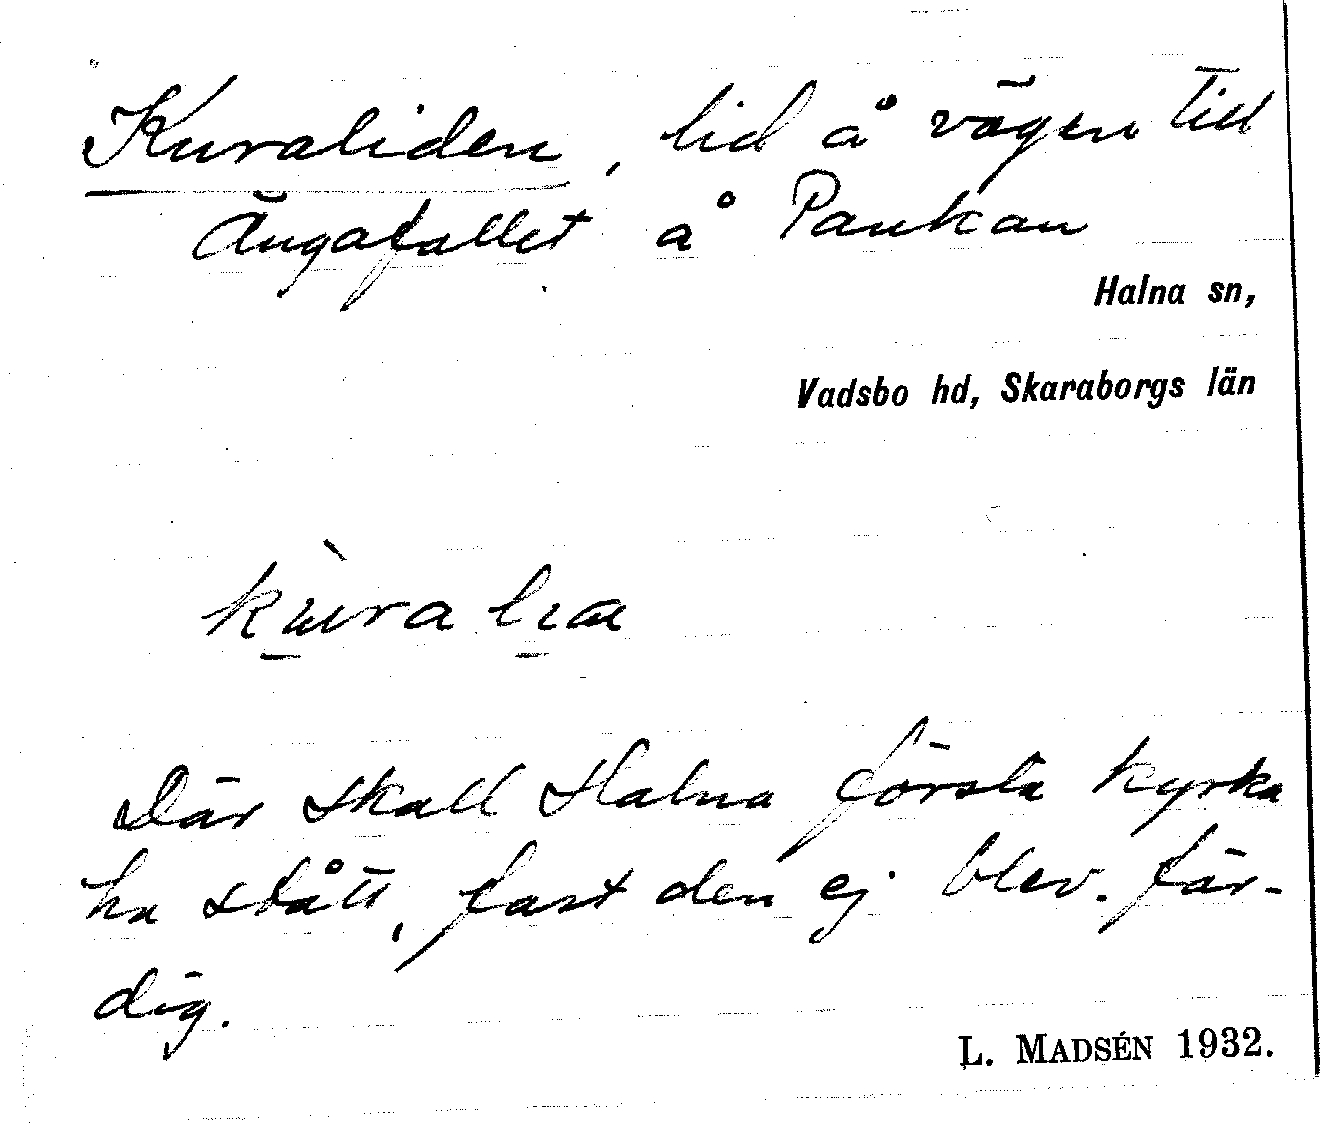 Kuraliden, lid å vägen till
Ängafallet å Pankan
Halna sn,
Vadsbo hd, Skaraborgs län
kùralia
Där skall Halna första kyrka
ha stått, fast den ej blev fär-
dig.
L. MADSÉN 1932.